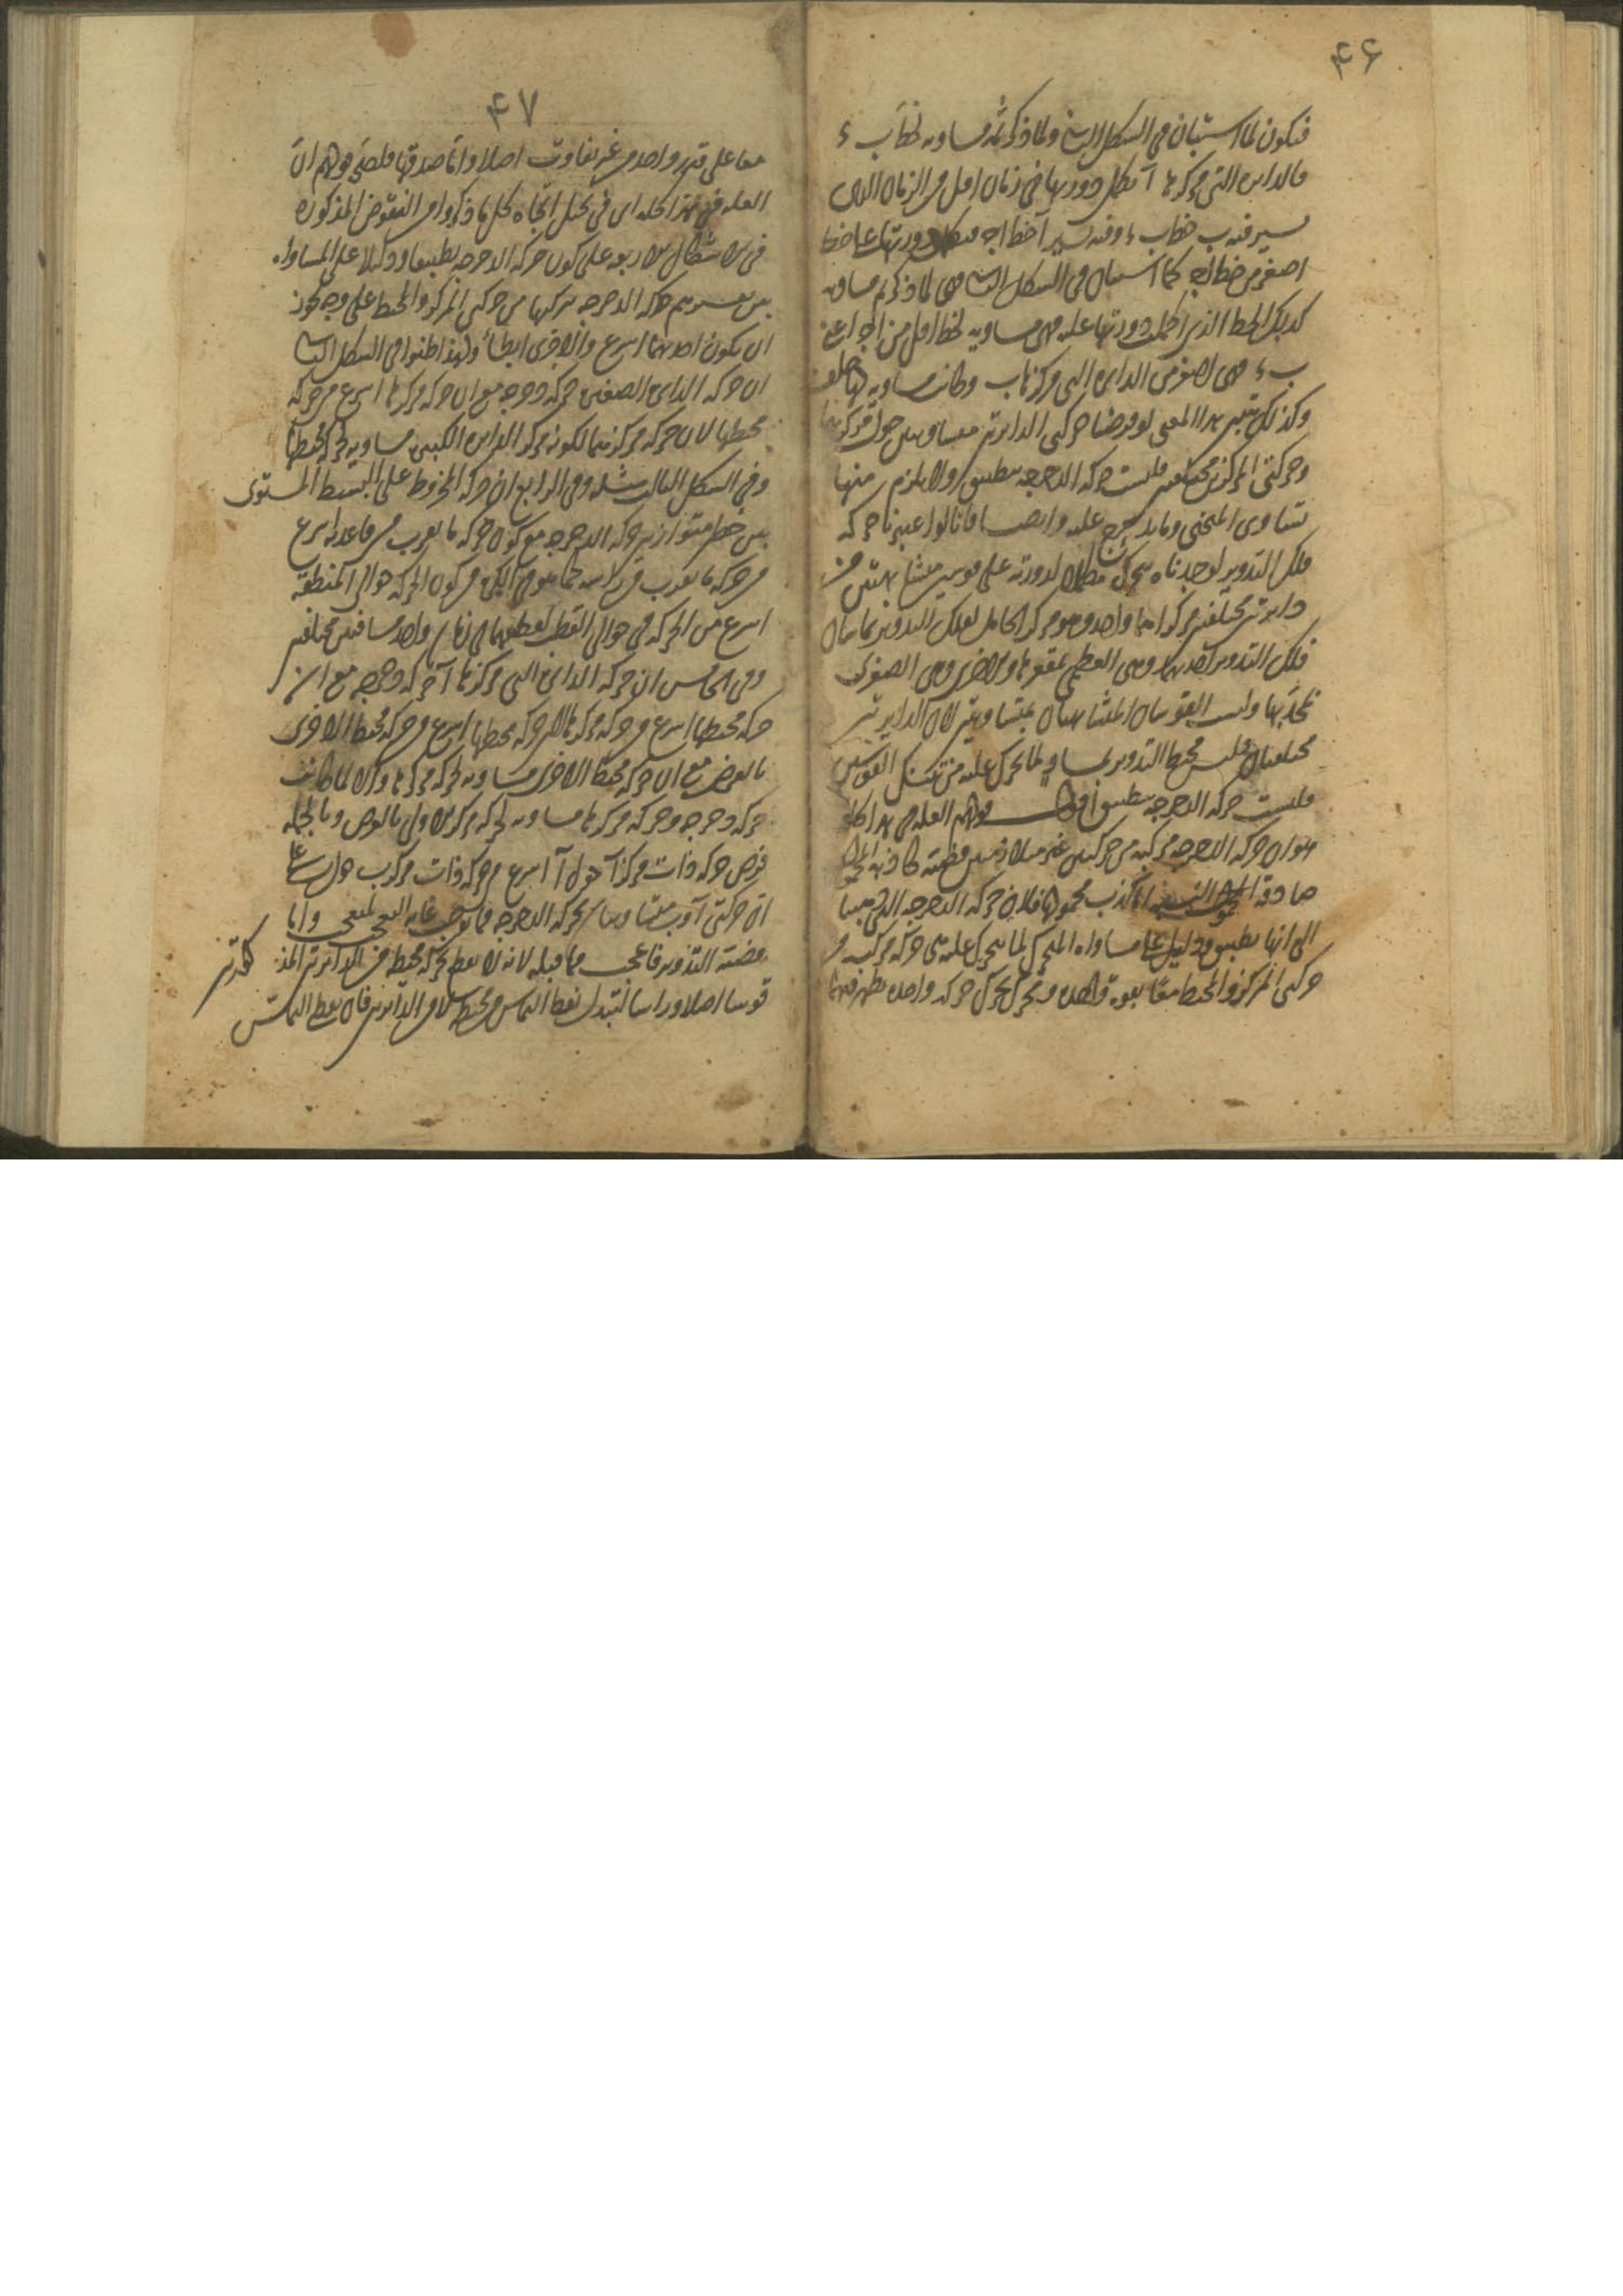 ۴۶
فيكون لما استبان فى الشكل الثانى ولما ذكرتم مساويه لخط ب ء
فالدايره التى مركزها آ تكمل دورتها فى زمان اقل من الزمان الذى
يسير فيه ب خط ب ء وفيه يسير آ خط ا ج فتكمل دورتها على خط
اصغر من خط ا ج كما استبان فى الشكل الثانى وهى لما ذكرتم مساويه
لذلك الخط الذى اكملت دورتها عليه فهى مساويه لخط اقل من ا ج اعنى
ب ء فهى اصغر من الدايره التى مركزها ب وكانت مساويه لها هذا خلف
وكذلك يتبين هذا المعنى لو فرضنا حركتى الدايرتين متساويتين حول مركزيهما
وحركتى المركزين مختلفتين فليست حركة الدحرجه بتطبيق ولا يلزم منها
تساوى المنحنى وما يدحرج عليه وايضا فانا لو اعتبرنا حركه
فلك التدوير لوجدناه يتحرك مكملا لدورته على قوسين متشابهتين من
دايرتين مختلفتين مركزاهما واحد وهو مركز الحامل لفلك التدوير يماسان
فلك التدوير احديهما وهى العظمى بمقعرها والاخرى وهى الصغرى
بمحدبها وليست القوسان المتشابهتان بمتساويتين لان الدايرتين
مختلفتان فليس محيط التدوير بمساو لما تحرك عليه من تينك القوسين
فليست حركة الدحرجه بتطبيق اقول قولهم العله فى هذا كله
هو ان حركة الدحرجه مركبه من حركتين غير متلازمتين قضيه كاذبه المحمول
صادقة النسبه اما كذب محمولها فلان حركة الدحرجه التى ذهبنا
الى انها بتطبيق ودليل على مساواه المتحرك لما يتحرك عليه هى حركه مركبه من
حركتى المركز والمحيط معا بقوه واحده ومحرك يحرك حركه واحده يظهر فيهما
۴۷
معا على قدر واحد من غير تفاوت اصلا واما صدقها فلصحة قولهم ان
العله فى هذا كله اى فى تخيل اتجاه كل ما ذكروا من النقوض المذكوره
فى الاشكال الاربعه على كون حركة الدحرجه بتطبيق ودليلا على المساواه
هى تفسيرهم حركة الدحرجه بتركبها من حركتى المركز والمحيط على وجه يجوز
ان يكون احديهما اسرع والاخرى ابطأ ولهذا ظنوا فى الشكل الثانى
ان حركة الدايره الصغرى حركة دحرجه مع ان حركة مركزها اسرع من حركة
محيطها لان حركة مركزها لكونه مركز الدايره الكبرى مساويه لحركة محيطها
وفى الشكل الثالث مثله وفى الرابع ان حركة المخروط على البسيط المستوى
بين خطين متوازيين حركة الدحرجه مع كون حركة ما يقرب من قاعدته اسرع
من حركة ما يقرب من راسه كما هو فى الكره من كون الحركه حوالى المنطقة
اسرع من الحركه فى حوالى القطب لقطعهما فى زمان واحد مسافتين مختلفتين
وفى الخامس ان حركة الدايره التى مركزها آ حركة دحرجه مع ان
حركة محيطها اسرع من حركة مركزها لان حركة محيطها اسرع من حركة محيط الاخرى
بالفرض مع ان حركة محيط الاخرى مساويه لحركة مركزها والا لما كانت
حركة دحرجه وحركة مركزها مساويه لحركة مركز الاولى بالفرض وبالجمله
فرض حركة ذات مركز آ حول آ اسرع من حركة ذات مركز ب حول ب على
ان حركتى آ و ب متساويتان بحركة الدحرجه مما يوجب غاية التعجب للمتعجب واما
قضية التدوير فاعجب مما قبله لانه لا يقطع بحركة محيطه من الدايرتين المذكورتين
قوسا اصلا وراسا لتبدل نقط التماس من محيطه لا من الدايرتين فان نقطه التماس